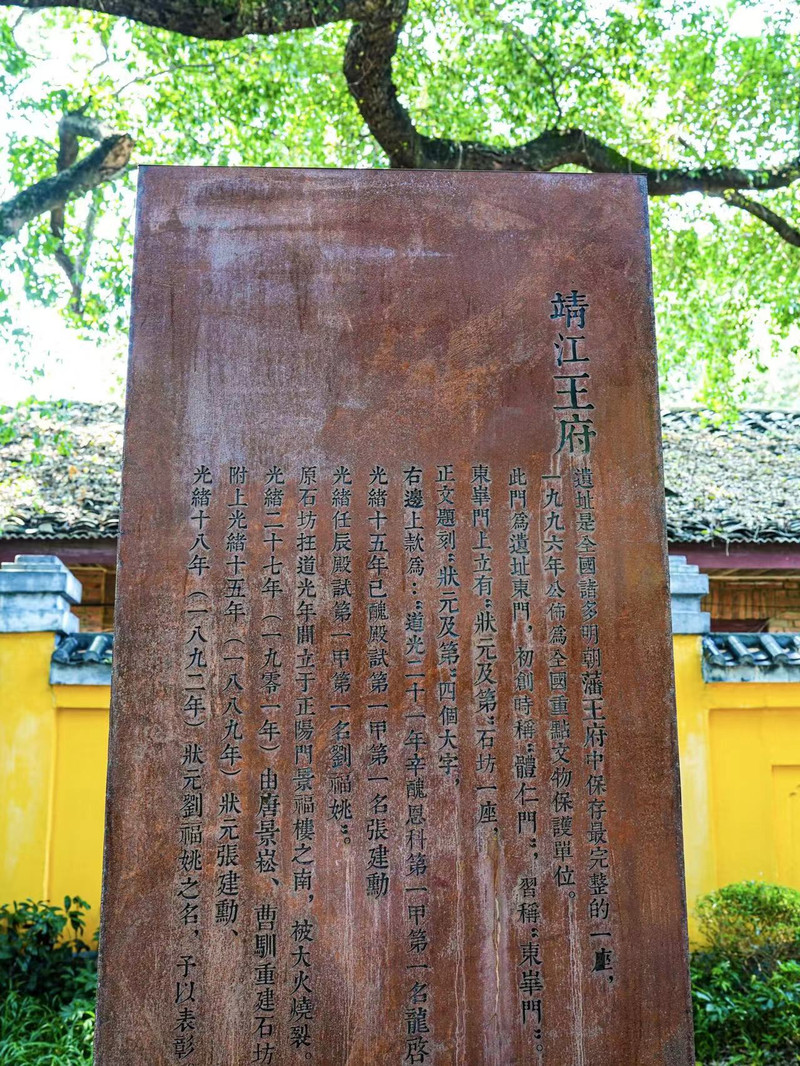 靖江王府
遺址是全國諸多明朝藩王府中保存最完整的一座,
一九九六年公佈爲全國重點文物保護單位。
此門爲遺址東門,初創時稱:體仁門:,習稱:東崋門:。
東崋門上立有:狀元及第:石坊一座,
正文題刻:狀元及第:四個大字,
右邊上款爲::道光二十一年辛醜恩科第一甲第一名龍啓
光緒十五年己醜殿試第一甲第一名張建勳
光緒任辰殿試第一甲第一名劉福姚:。
原石坊在道光年間立于正陽門景福樓之南,被大火燒裂。
光緒二十七年(一九零一年)由唐景崧、曹馴重建石坊
附上光緒十五年(一八八九年)狀元張建勳、
光緒十八年(一八九二年)狀元劉福姚之名,予以表彰